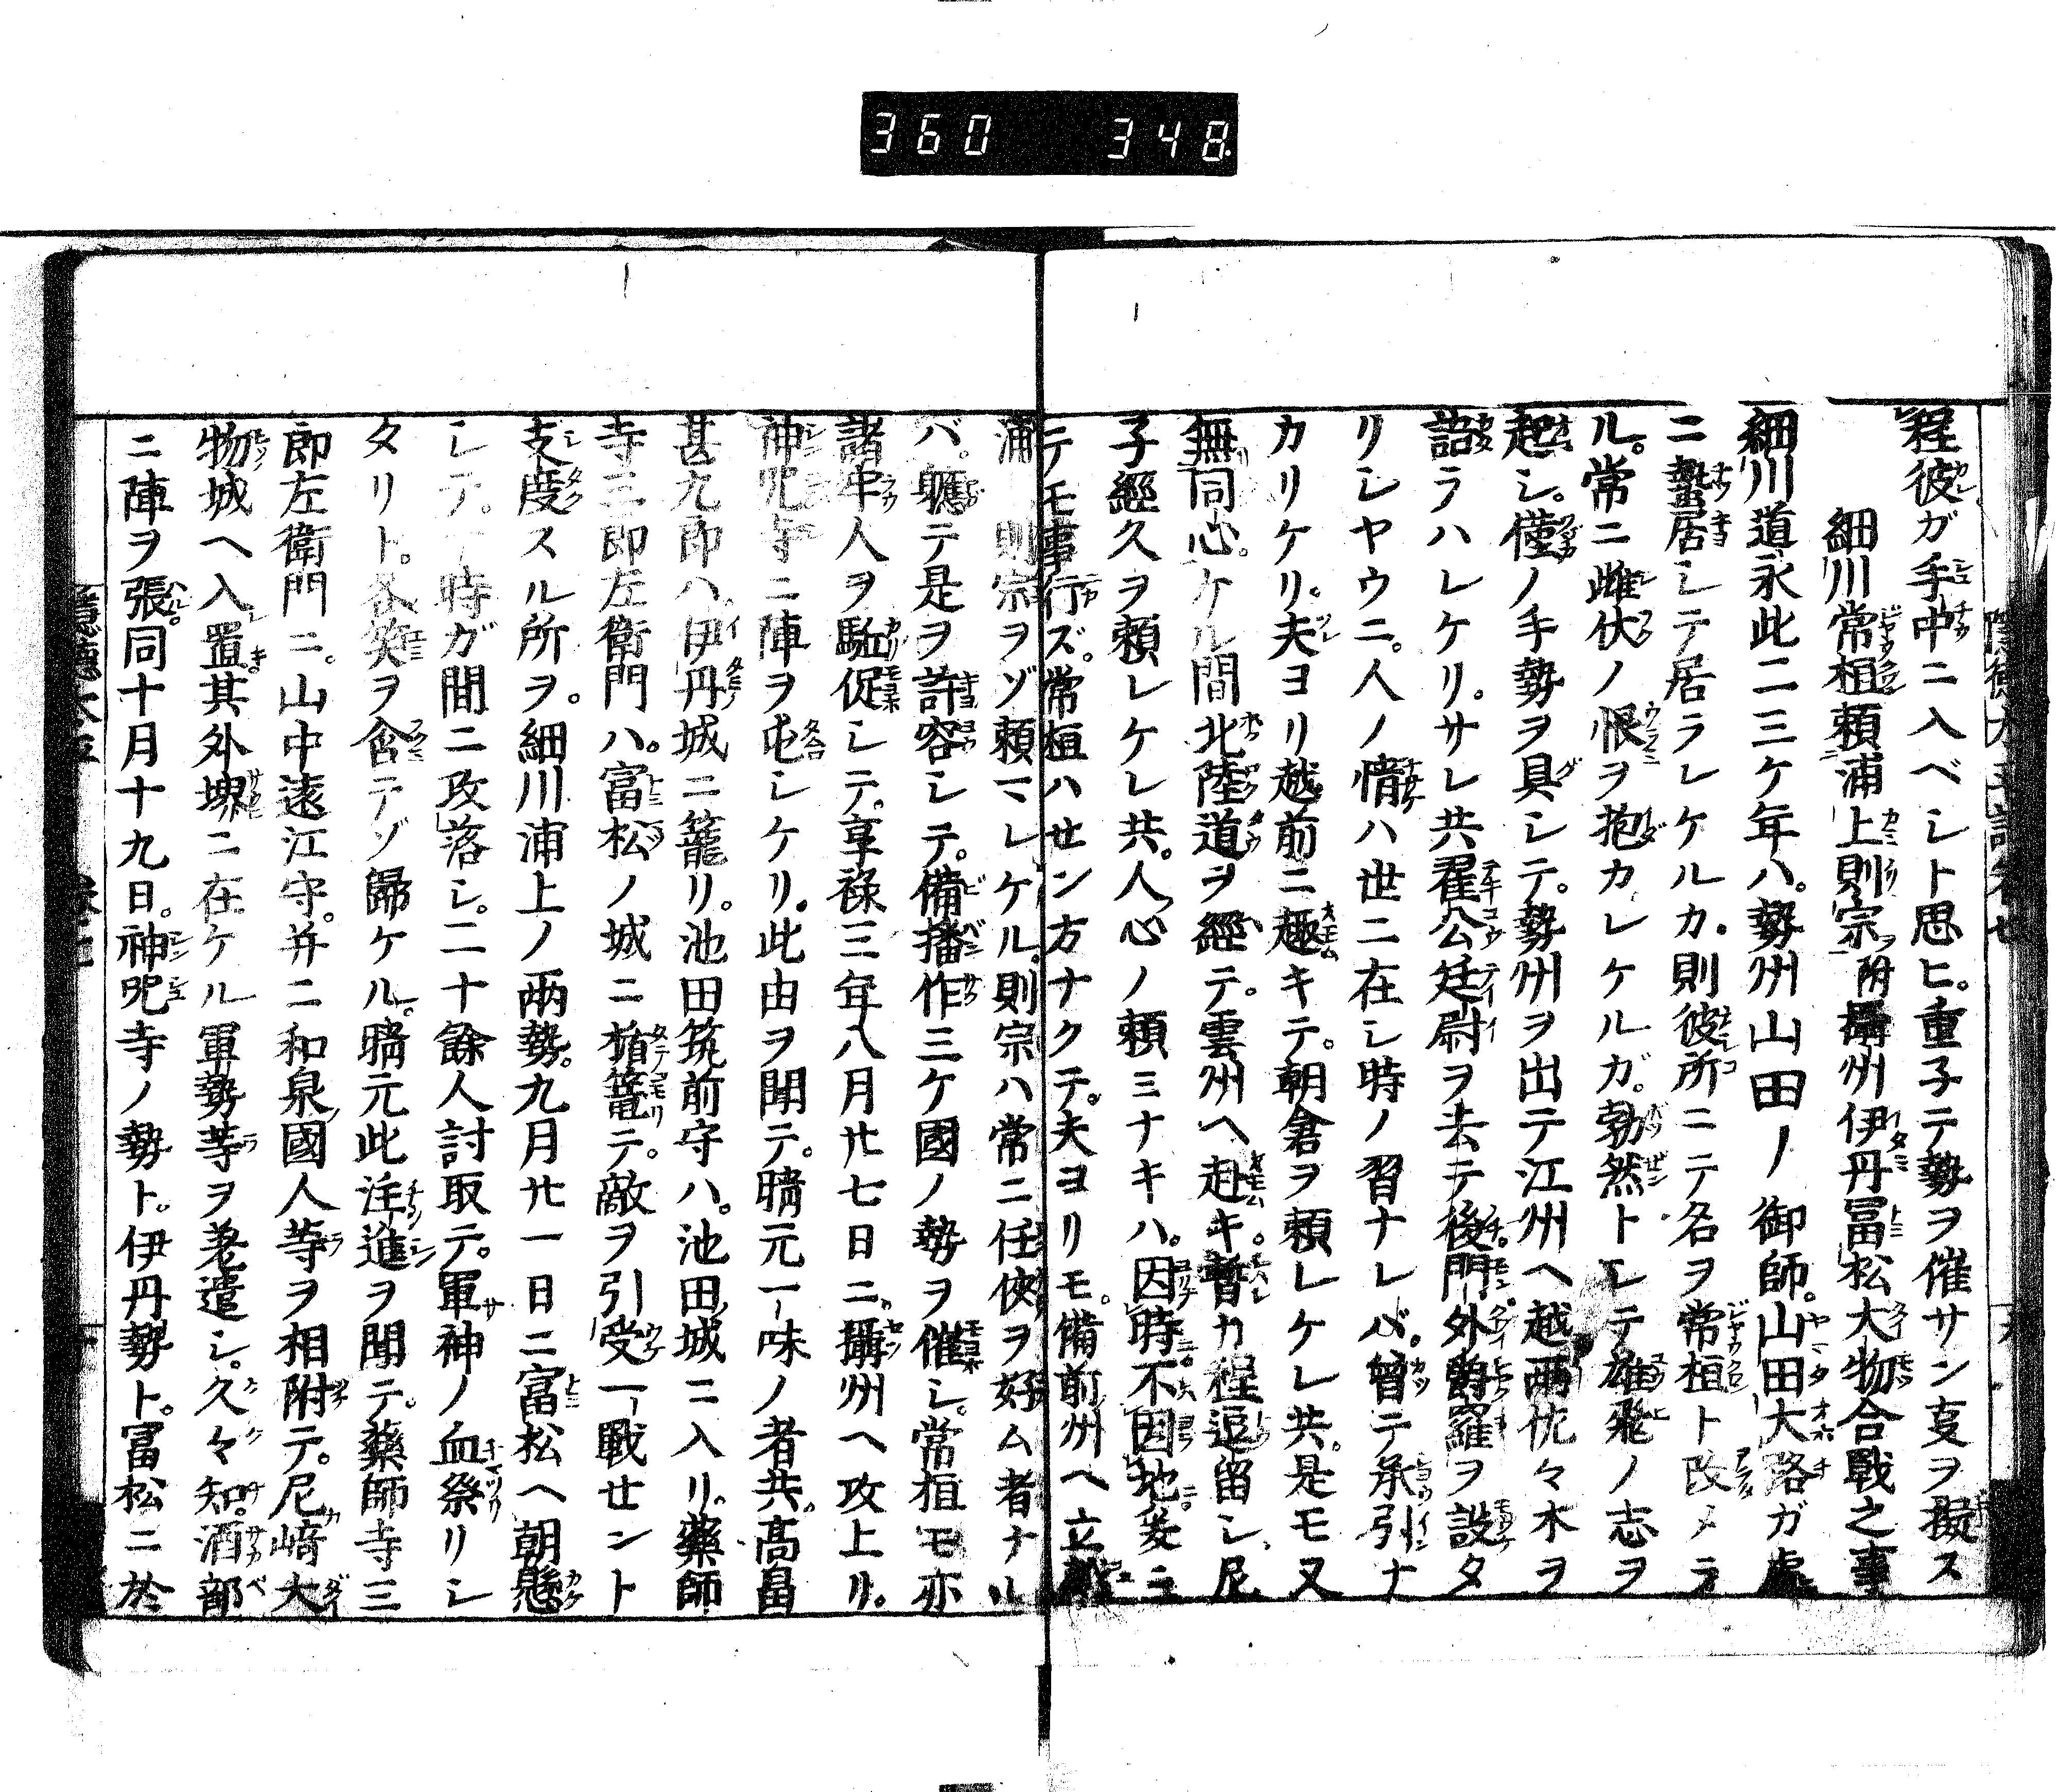 360 348
程彼ガ手中ニ入ベシト思ヒ。重子テ勢ヲ催サン㕝ヲ擬ス
細川常桓頼浦上則宗附攝州伊丹冨松大物合戰之事
細川道永此二三ケ年ハ。勢州山田ノ御師。山田大路ガ處
ニ蟄居シテ居ラレケルカ。則彼所ニテ名ヲ常桓ト改メラ
ル。常ニ雌伏ノ恨ヲ抱カレケルガ。勃然トシテ雄飛ノ志ヲ
起シ。僅ノ手勢ヲ具シテ。勢州ヲ出テ江州ヘ越両佐々木ヲ
語ラハレケリ。サレ共翟公廷尉ヲ去テ後。門外爵羅ヲ設タ
リシヤウニ。人ノ情ハ世ニ在シ時ノ習ナレバ。曽テ承引ナ
カリケリ。夫ヨリ越前ニ趣キテ。朝倉ヲ頼レケレ共。是モ又
無同心ケル間北陸道ヲ經テ。雲州ヘ赴キ。暫カ程逗留シ。尼
子經久ヲ頼レケレ共。人心ノ頼ミナキハ。因時不因地
テモ事行ズ。常桓ハセン方ナクテ。夫ヨリモ。備前州ヘ立越
浦則宗ヲゾ頼マレケル。則宗ハ常ニ任俠ヲ好ム者ナル
バ。軈テ是ヲ許容シテ。備播作三ケ國ノ勢ヲ催シ。常桓モ亦
諸牢人ヲ駈促シテ。享祿三年八月廿七日ニ。攝州ヘ攻上リ。
神呪寺ニ陣ヲ屯シケリ。此由ヲ聞テ。晴元一味ノ者共。髙畠
甚九郎ハ。伊丹城ニ籠リ。池田筑前守ハ。池田城ニ入リ。藥師
寺三郎左衛門ハ。富松ノ城ニ楯籠テ。敵ヲ引受一戰セント
支度スル所ヲ。細川浦上ノ両勢。九月廿一日ニ富松ヘ朝懸
シテ。一時ガ間ニ攻落シ。二十餘人討取テ。軍神ノ血祭リシ
タリト。各笑ヲ含テゾ歸ケル。晴元此注進ヲ聞テ。藥師寺三
郎左衛門ニ。山中遠江守。并ニ和泉國人等ヲ相附テ。尼﨑大
物城ヘ入置。其外堺ニ在ケル軍勢等ヲ差遣シ。久々知。酒部
ニ陣ヲ張。同十月十九日。神呪寺ノ勢ト。伊丹勢ト。冨松ニ於